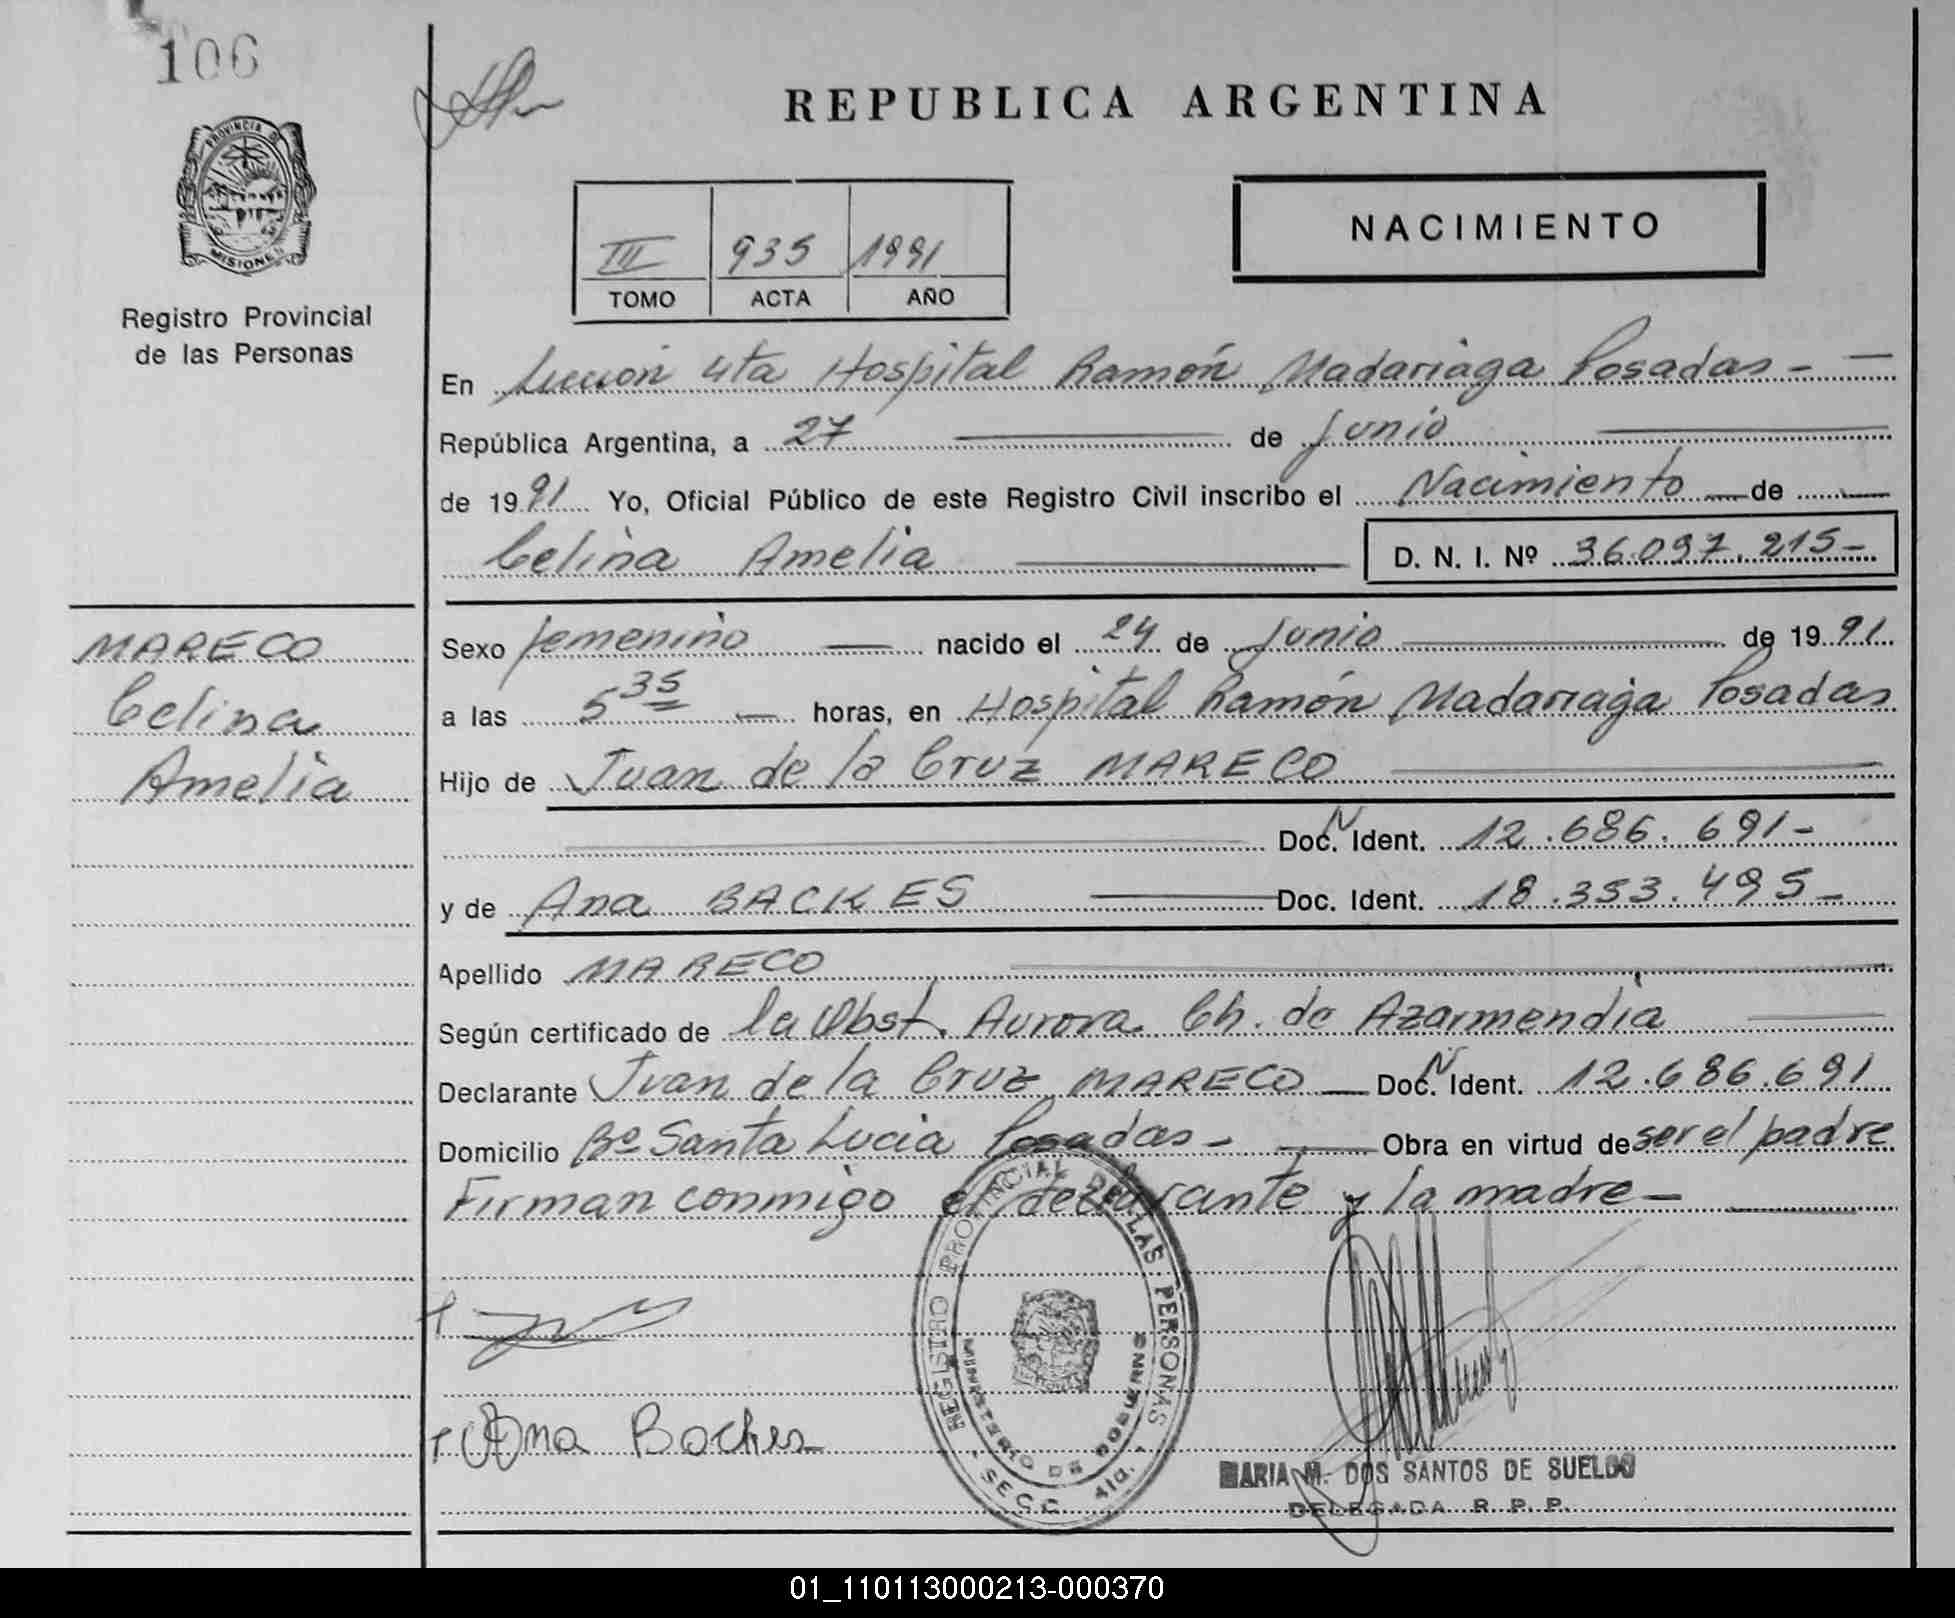 106
REPUBLICA ARGENTINA
PROVINCIA DE MISIONES
NACIMIENTO
III 935 1991
TOMO ACTA AÑO
Registro Provincial
de las Personas
En Sección 4ta Hospital Ramón Madariaga Posadas -
República Argentina, a 27 de Junio
de 1991 Yo, Oficial Público de este Registro Civil inscribo el Nacimiento de
Celina Amelia D. N. I. Nº 36.097.215-
MARECO
Celina
Amelia
Sexo femenino nacido el 24 de Junio de 1991
a las 5 35 horas, en Hospital Ramón Madariaga Posadas
Hijo de Juan de la Cruz MARECO
Doc. N Ident. 12.686.691-
y de Ana BACKES Doc. Ident. 18.353.495-
Apellido MARECO
Según certificado de la Obst. Aurora Ch. de Azarmendia
Declarante Juan de la Cruz MARECO Doc. N Ident. 12.686.691
Domicilio Bº Santa Lucia Posadas - Obra en virtud de ser el padre
Firman conmigo el declarante y la madre -
REGISTRO PROVINCIAL DE LAS PERSONAS
MINISTERIO DE GOBIERNO
- SECC. 4ta. -
Ana Backes
MARIA M. DOS SANTOS DE SUELDO
DELEGADA R. P. P.
01_110113000213-000370